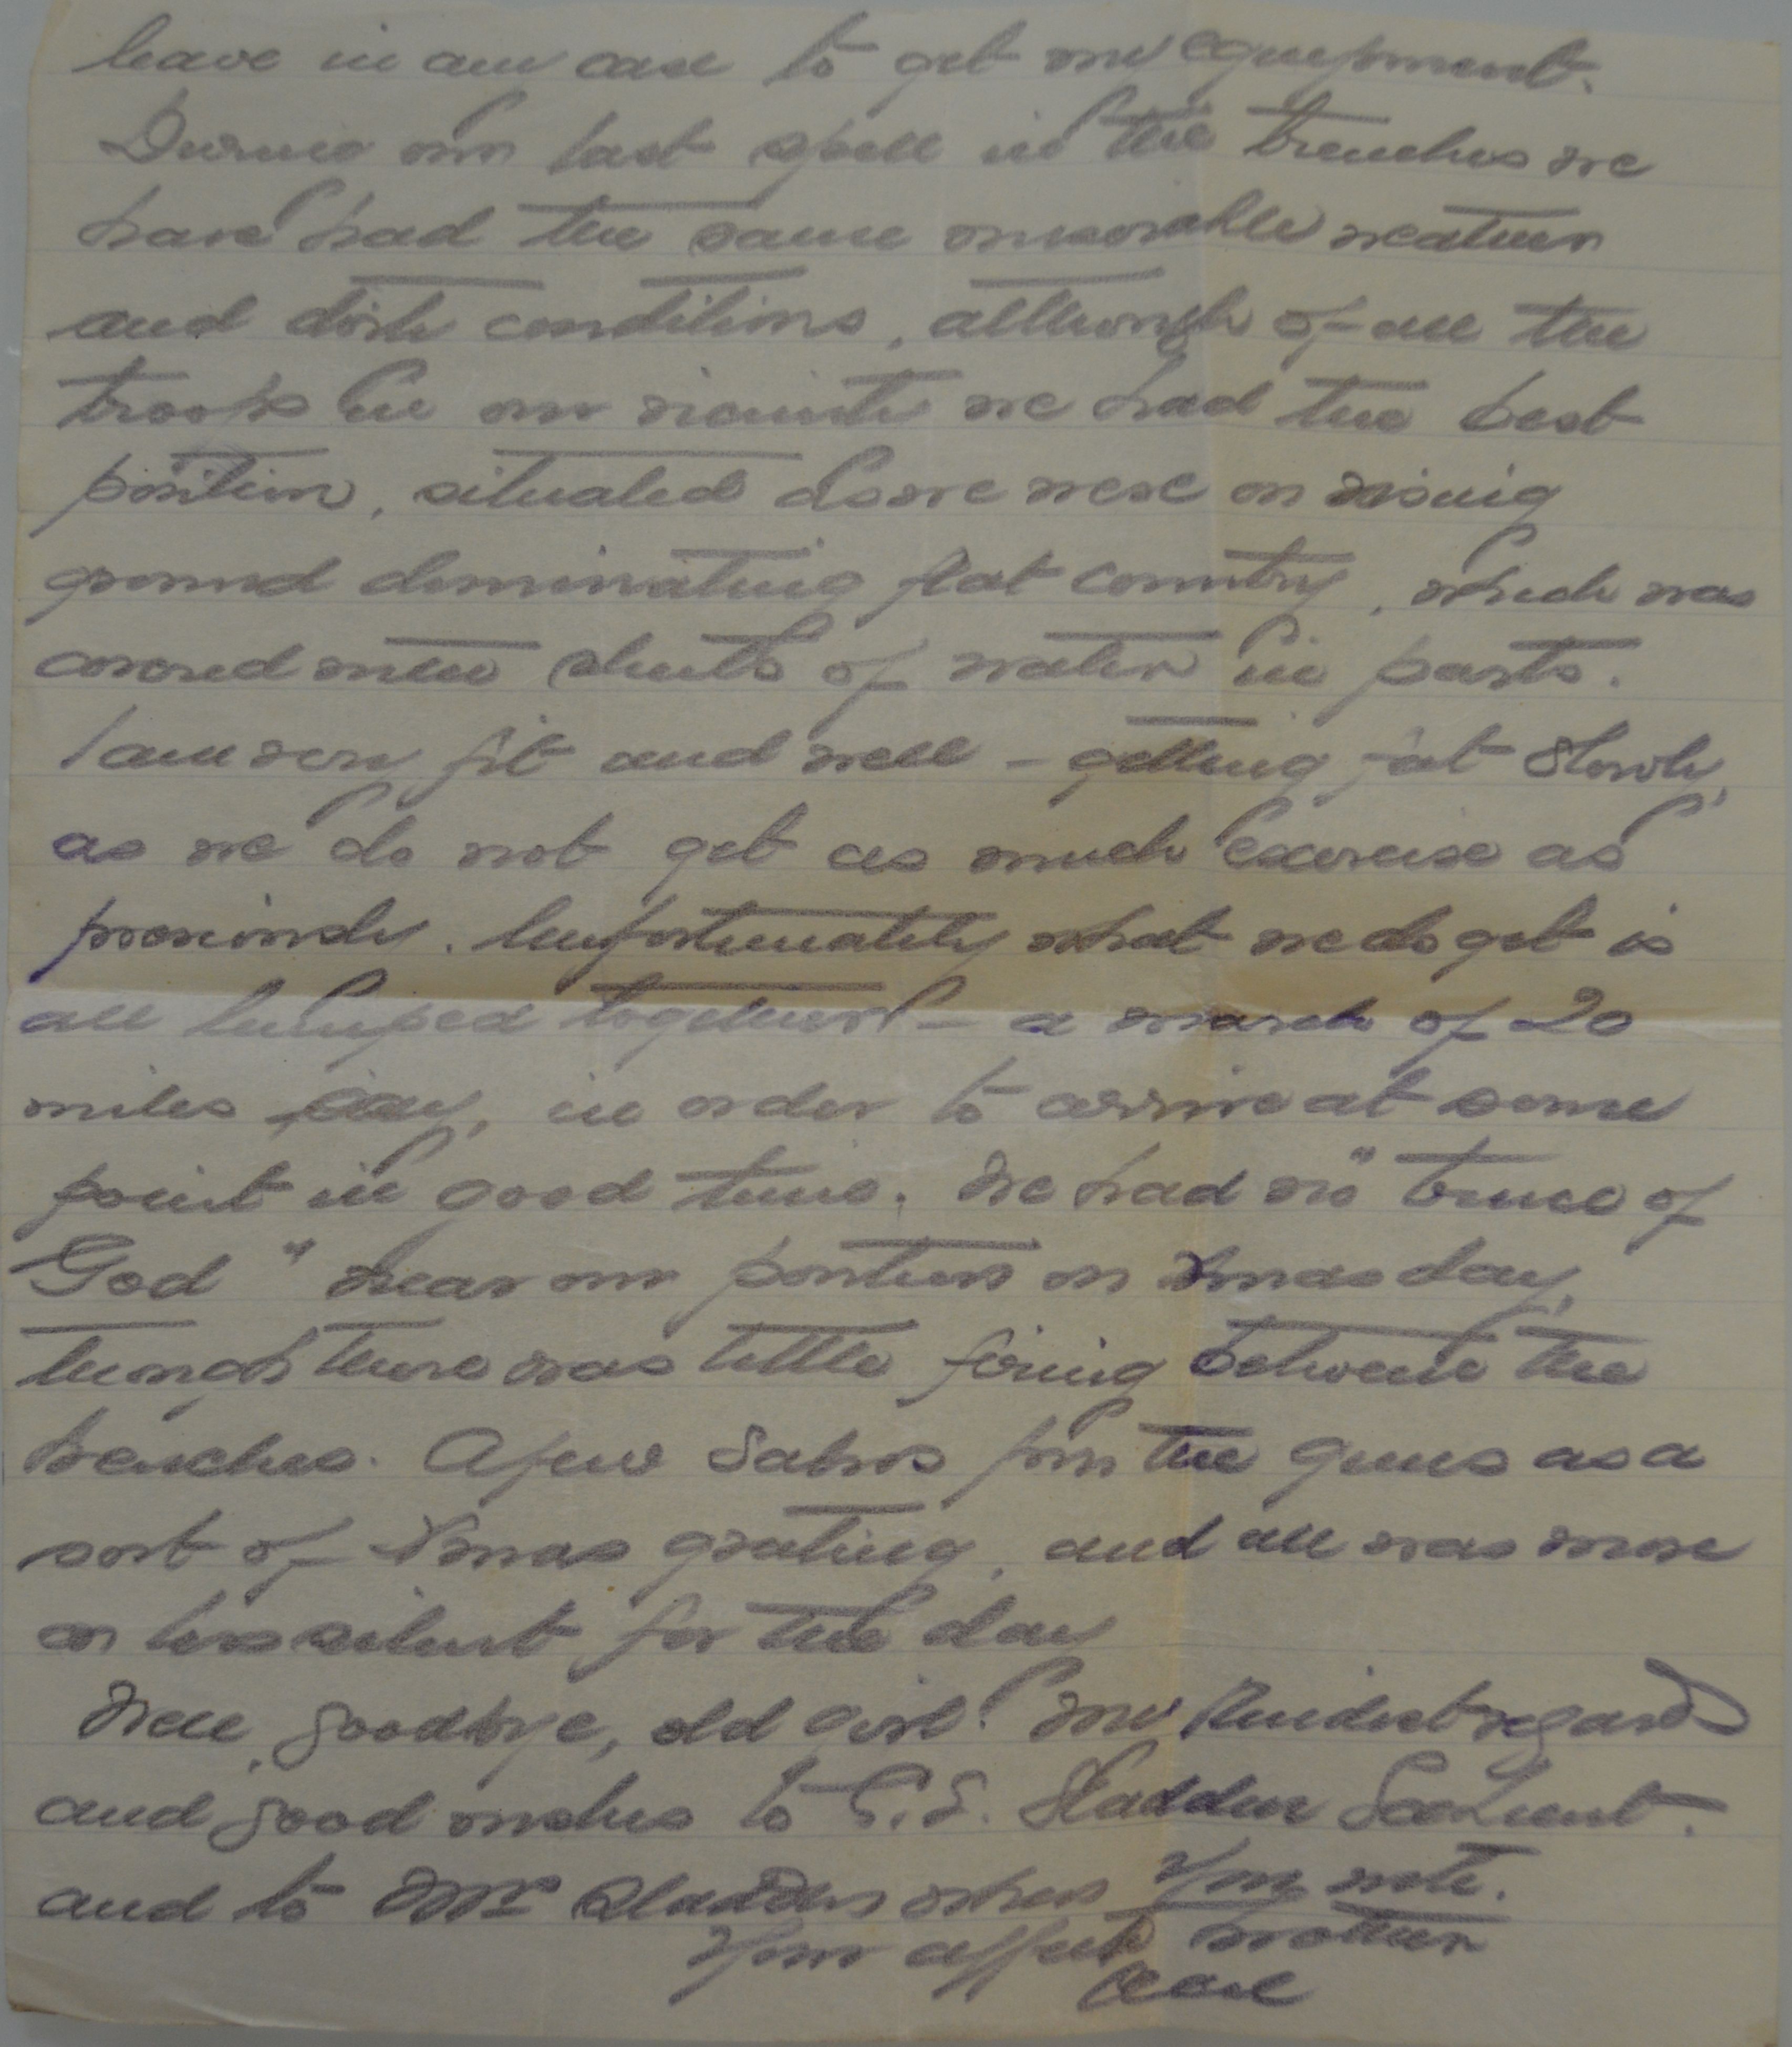 leave in any case to get my equipment.
During our last spell in the trenches we
have had the same miserable weather
and dirty conditions, although of all the
troops in our vicinity we had the best
position, situated as we were on rising
ground dominating flat country, which was
covered with sheets of water in parts.
I am very fit and well - getting fat slowly,
as we do not get as much exercise as
previously. Unfortunately what we do get is
all lumped together - a march of 20
miles say, in order to arrive at some
point in good time. We had no "truce of
God" near our position on Xmas day,
though there was little firing between the
trenches. A few salvos from the guns as a
sort of Xmas greeting, and all was more
or less silent for the day
Well, goodbye, old girl! My kindest regards
and good wishes to
and to Mr Sladden when you write.
Your affect brother
Cecil